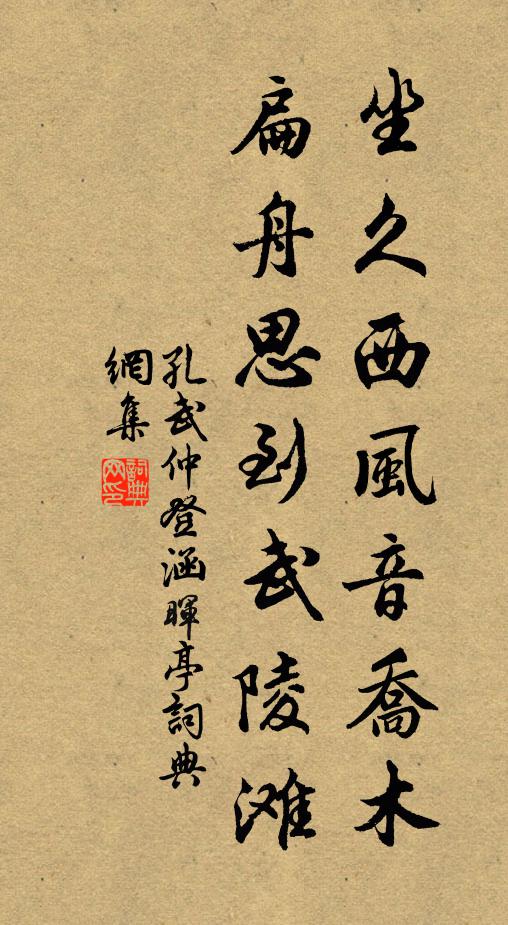 坐久西風音喬木
扁舟思到武陵滩
孔武仲登涵暉亭詞典
網集
詞典
网印